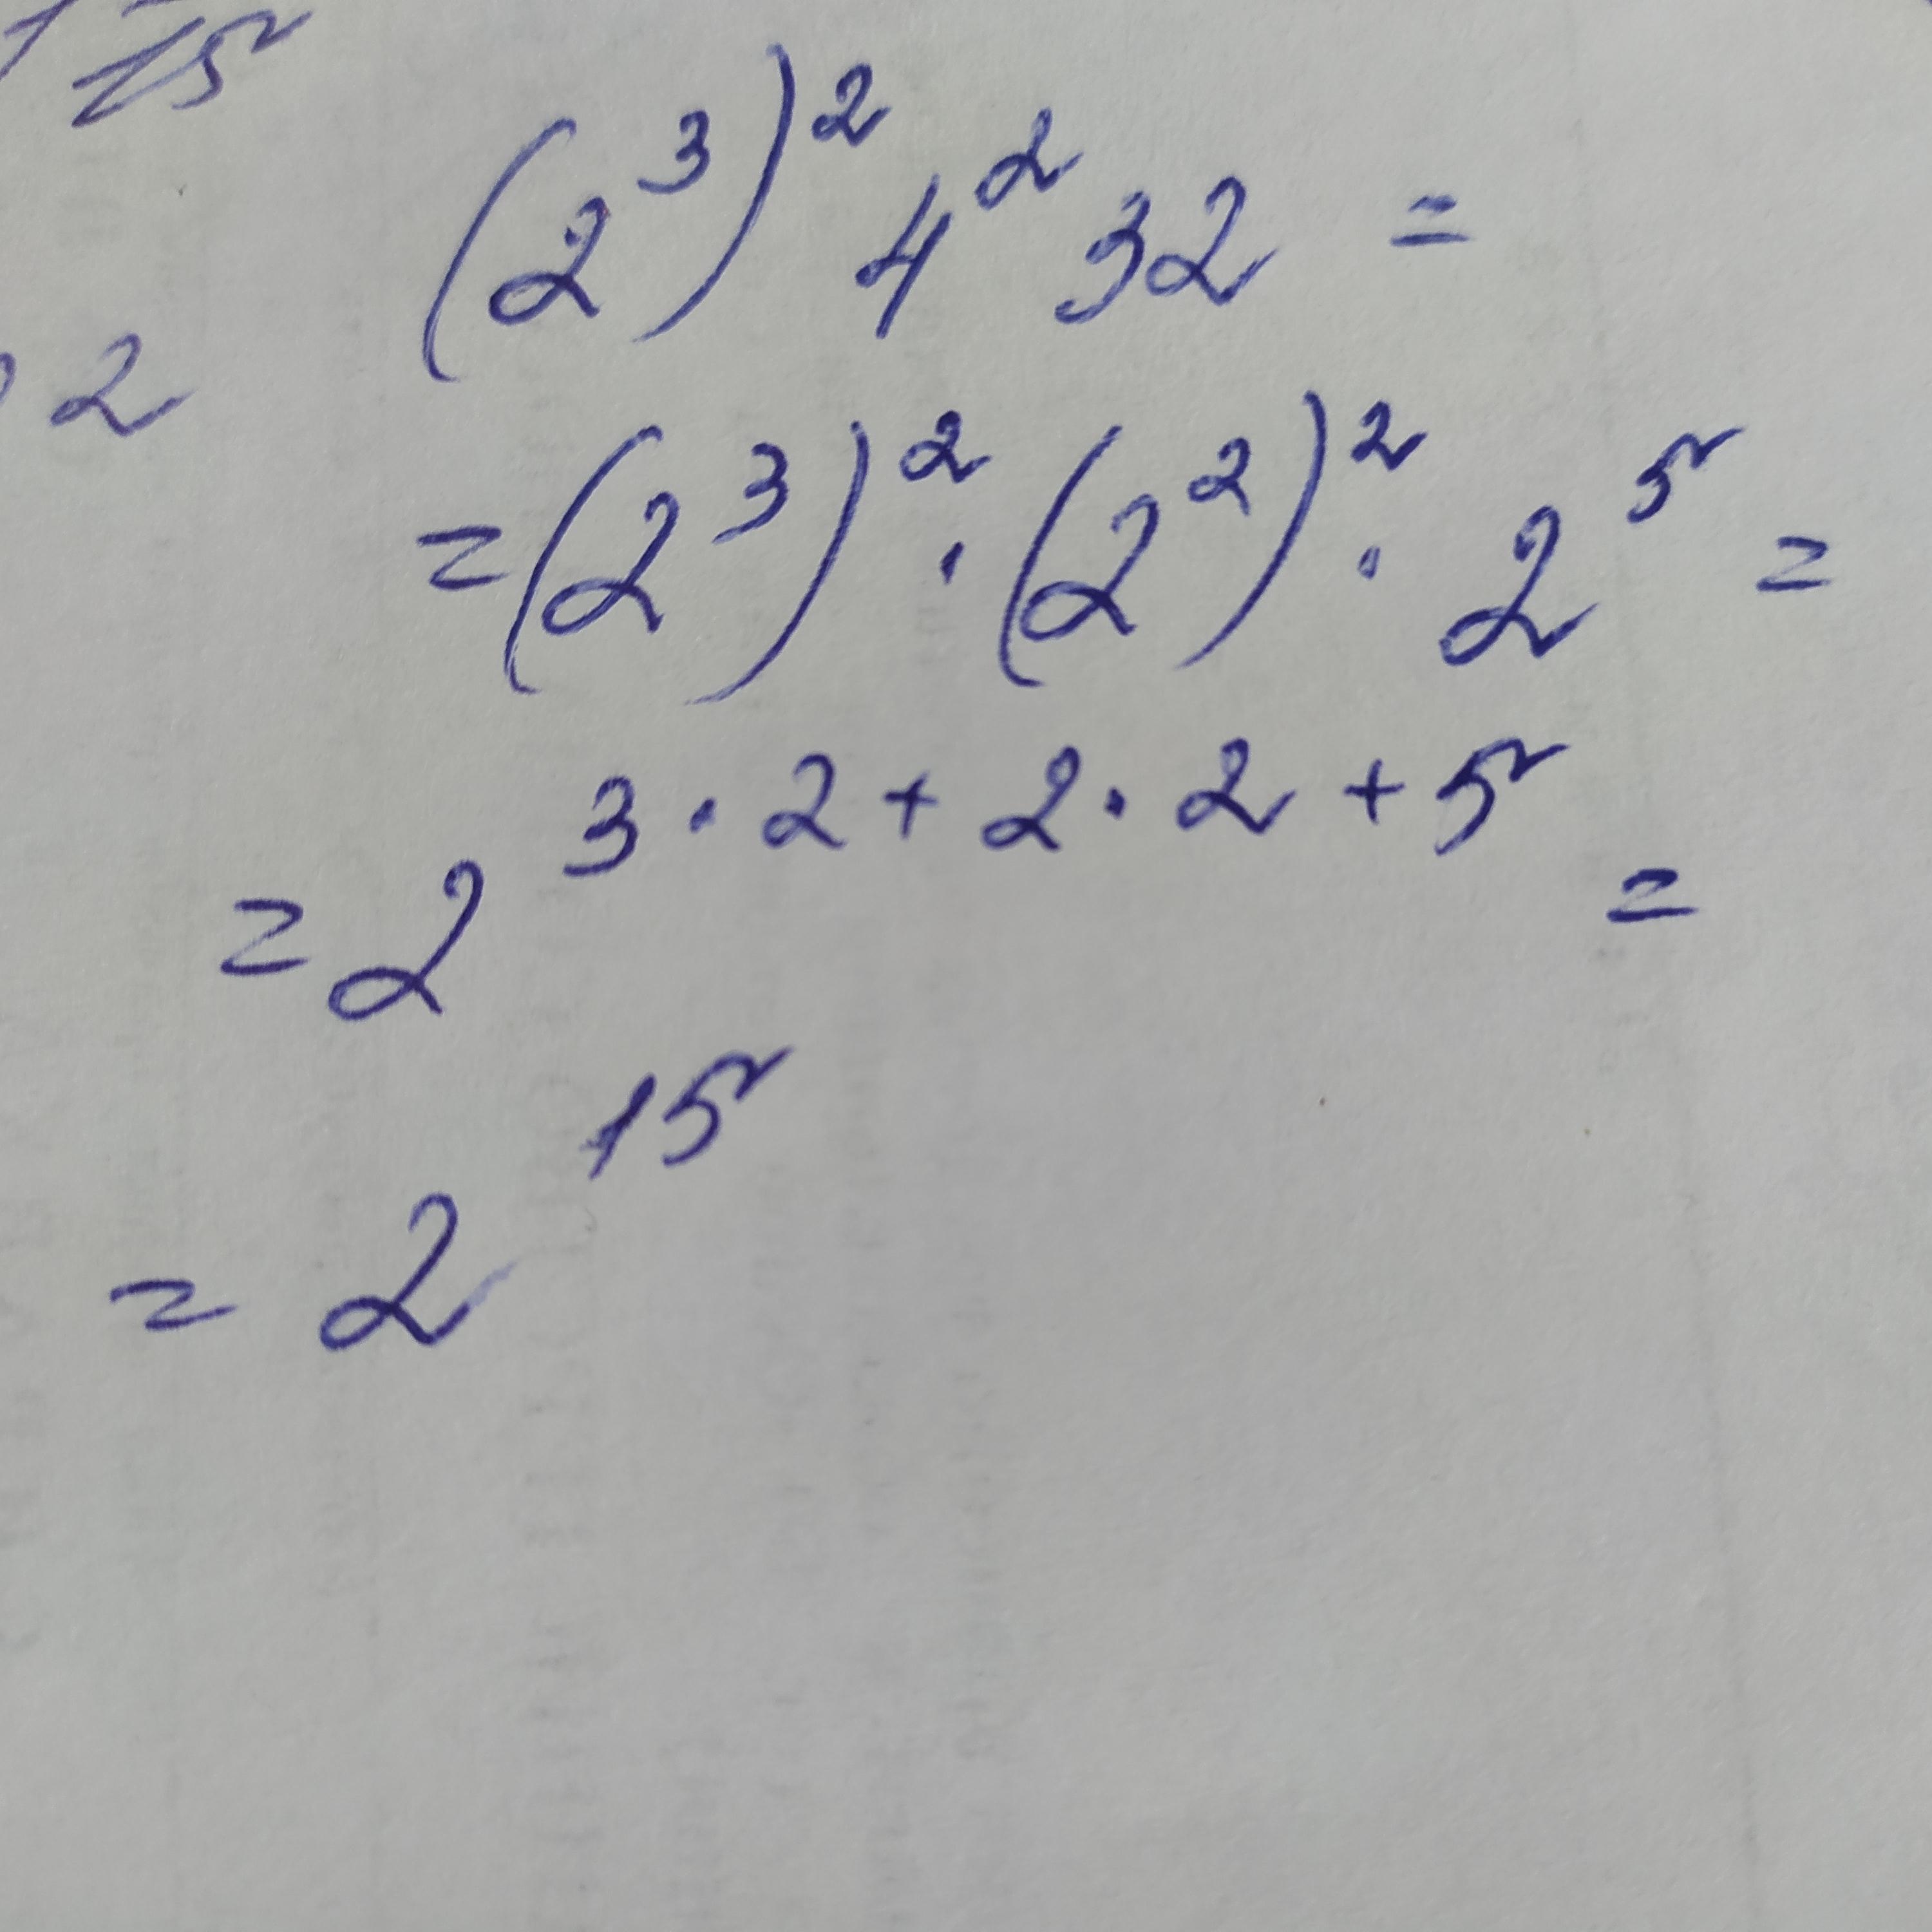 15
(2³)² 4² 32 =
2
= (2³)² · (2²)² · 2⁵ =
= 2^{3 · 2 + 2 · 2 + 5} =
= 2¹⁵